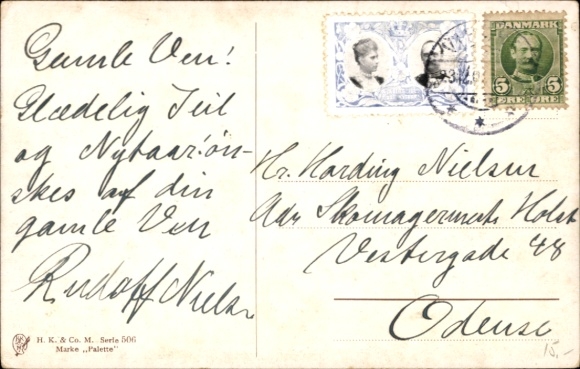 Gamle Ven!
Glædelig Jul
og Nytaar! øn-
skes af din
gamle Ven
Rudolf Nielsen
DANMARK
5 5
ØRE ØRE
Hr. Harding Nielsen
Adr Skomagermest Holst
Vestergade 48
Odense
15,-
H. K. & Co. M. Serie 506
Marke „Palette"